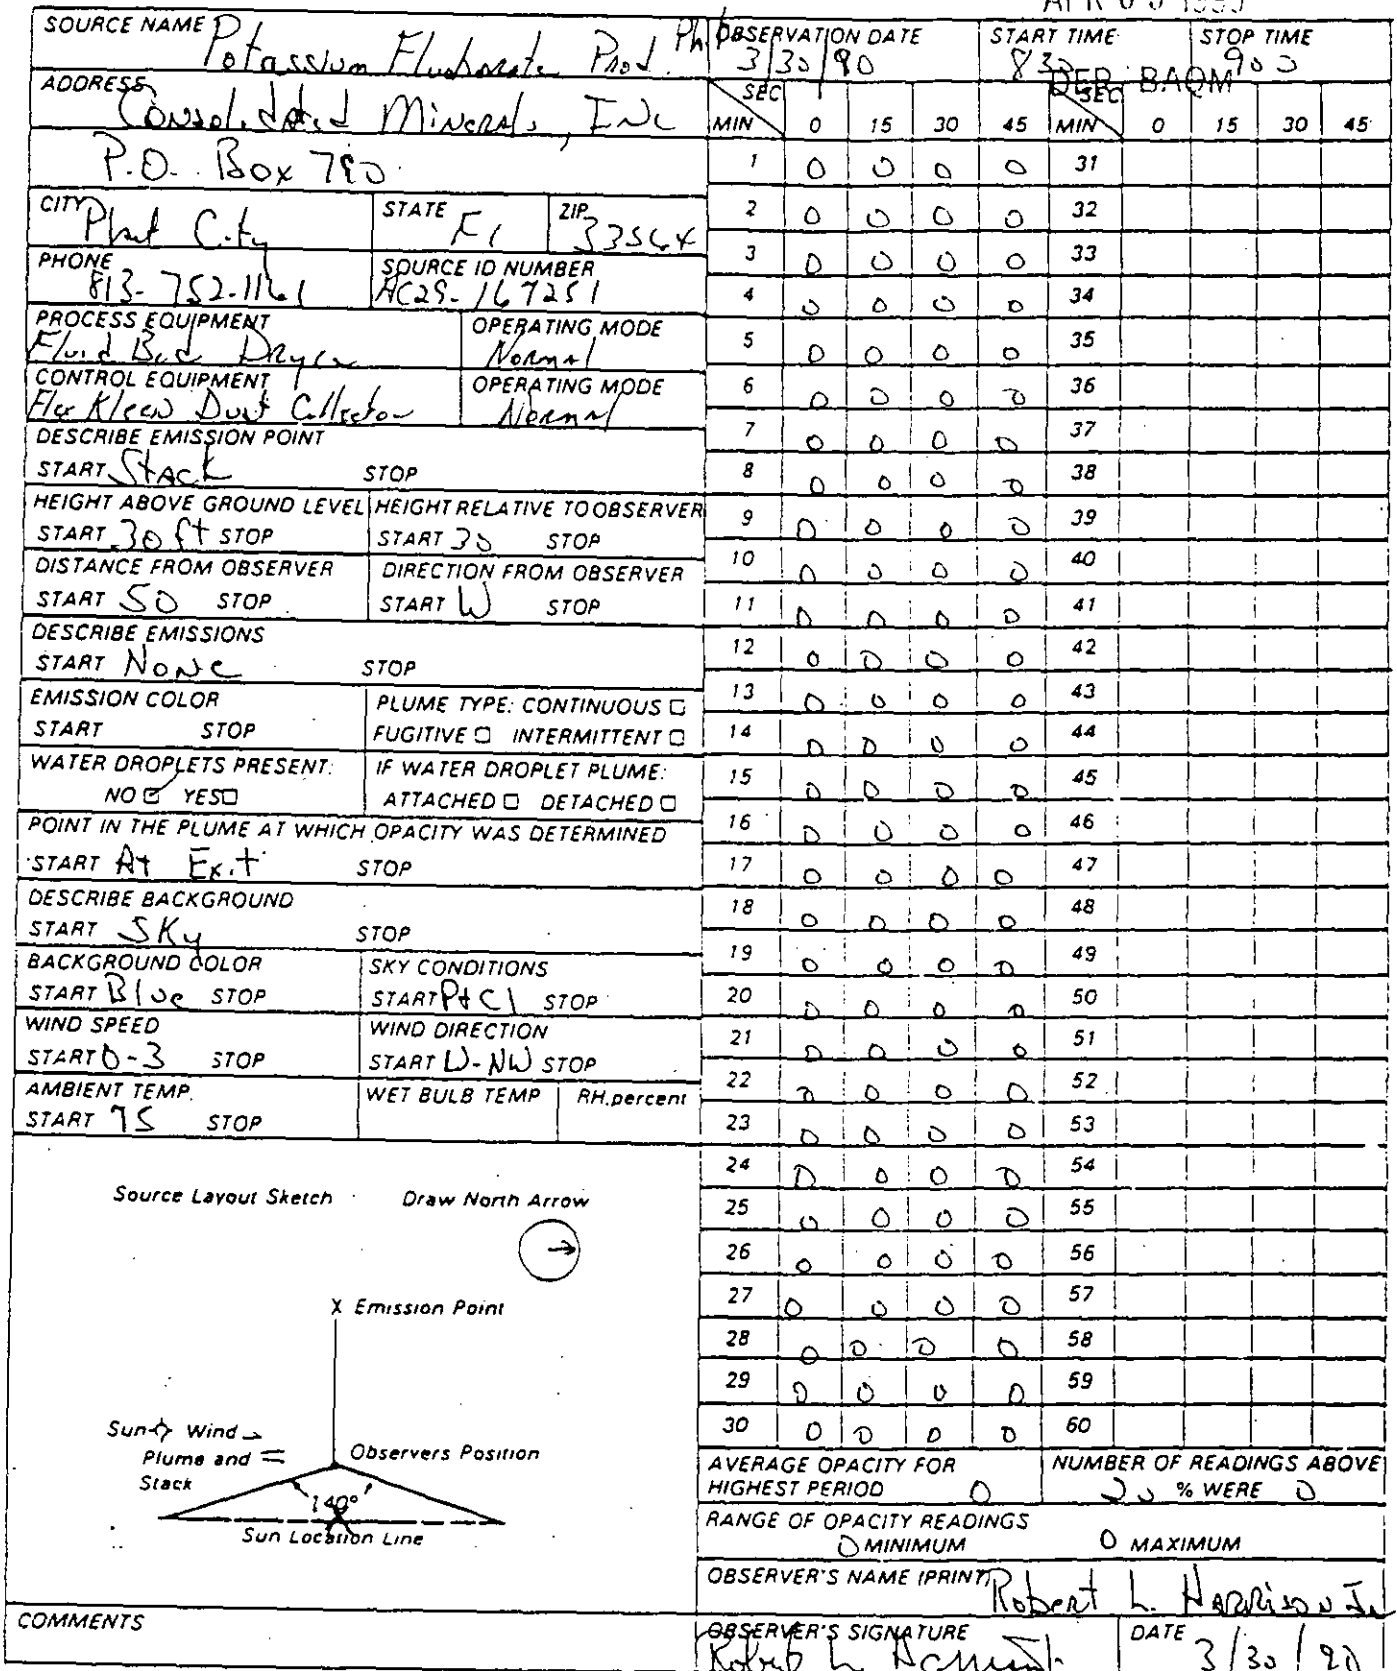 SOURCE NAME Potassium Fluoborate Prod. Ph.
OBSERVATION DATE 3/30/90
START TIME 830
STOP TIME 900
DER BAQM
ADDRESS Consolidated Minerals, Inc
P.O. Box 790
CITY Plant City
STATE Fl
ZIP 33564
PHONE 813-752-1161
SOURCE ID NUMBER AC29-167251
PROCESS EQUIPMENT Fluid Bed Dryer
OPERATING MODE Normal
CONTROL EQUIPMENT Flex Kleen Dust Collector
OPERATING MODE Normal
DESCRIBE EMISSION POINT
START Stack STOP
HEIGHT ABOVE GROUND LEVEL
START 30 ft STOP
HEIGHT RELATIVE TO OBSERVER
START 30 STOP
DISTANCE FROM OBSERVER
START 50 STOP
DIRECTION FROM OBSERVER
START W STOP
DESCRIBE EMISSIONS
START None STOP
EMISSION COLOR
START STOP
PLUME TYPE: CONTINUOUS □
FUGITIVE □ INTERMITTENT □
WATER DROPLETS PRESENT:
NO ☑ YES □
IF WATER DROPLET PLUME:
ATTACHED □ DETACHED □
POINT IN THE PLUME AT WHICH OPACITY WAS DETERMINED
START At Exit STOP
DESCRIBE BACKGROUND
START Sky STOP
BACKGROUND COLOR
START Blue STOP
SKY CONDITIONS
START Pt Cl STOP
WIND SPEED
START 0-3 STOP
WIND DIRECTION
START W-NW STOP
AMBIENT TEMP.
START 75 STOP
WET BULB TEMP
RH.percent
Source Layout Sketch Draw North Arrow
X Emission Point
Sun Wind
Plume and
Stack
Observers Position
140°
Sun Location Line
COMMENTS
SEC SEC
MIN 0 15 30 45 MIN 0 15 30 45
1 0 0 0 0 31
2 0 0 0 0 32
3 0 0 0 0 33
4 0 0 0 0 34
5 0 0 0 0 35
6 0 0 0 0 36
7 0 0 0 0 37
8 0 0 0 0 38
9 0 0 0 0 39
10 0 0 0 0 40
11 0 0 0 0 41
12 0 0 0 0 42
13 0 0 0 0 43
14 0 0 0 0 44
15 0 0 0 0 45
16 0 0 0 0 46
17 0 0 0 0 47
18 0 0 0 0 48
19 0 0 0 0 49
20 0 0 0 0 50
21 0 0 0 0 51
22 0 0 0 0 52
23 0 0 0 0 53
24 0 0 0 0 54
25 0 0 0 0 55
26 0 0 0 0 56
27 0 0 0 0 57
28 0 0 0 0 58
29 0 0 0 0 59
30 0 0 0 0 60
AVERAGE OPACITY FOR
HIGHEST PERIOD 0
NUMBER OF READINGS ABOVE
20 % WERE 0
RANGE OF OPACITY READINGS
0 MINIMUM 0 MAXIMUM
OBSERVER'S NAME (PRINT) Robert L. Harrison Jr
OBSERVER'S SIGNATURE Robert L
DATE 3/30/90